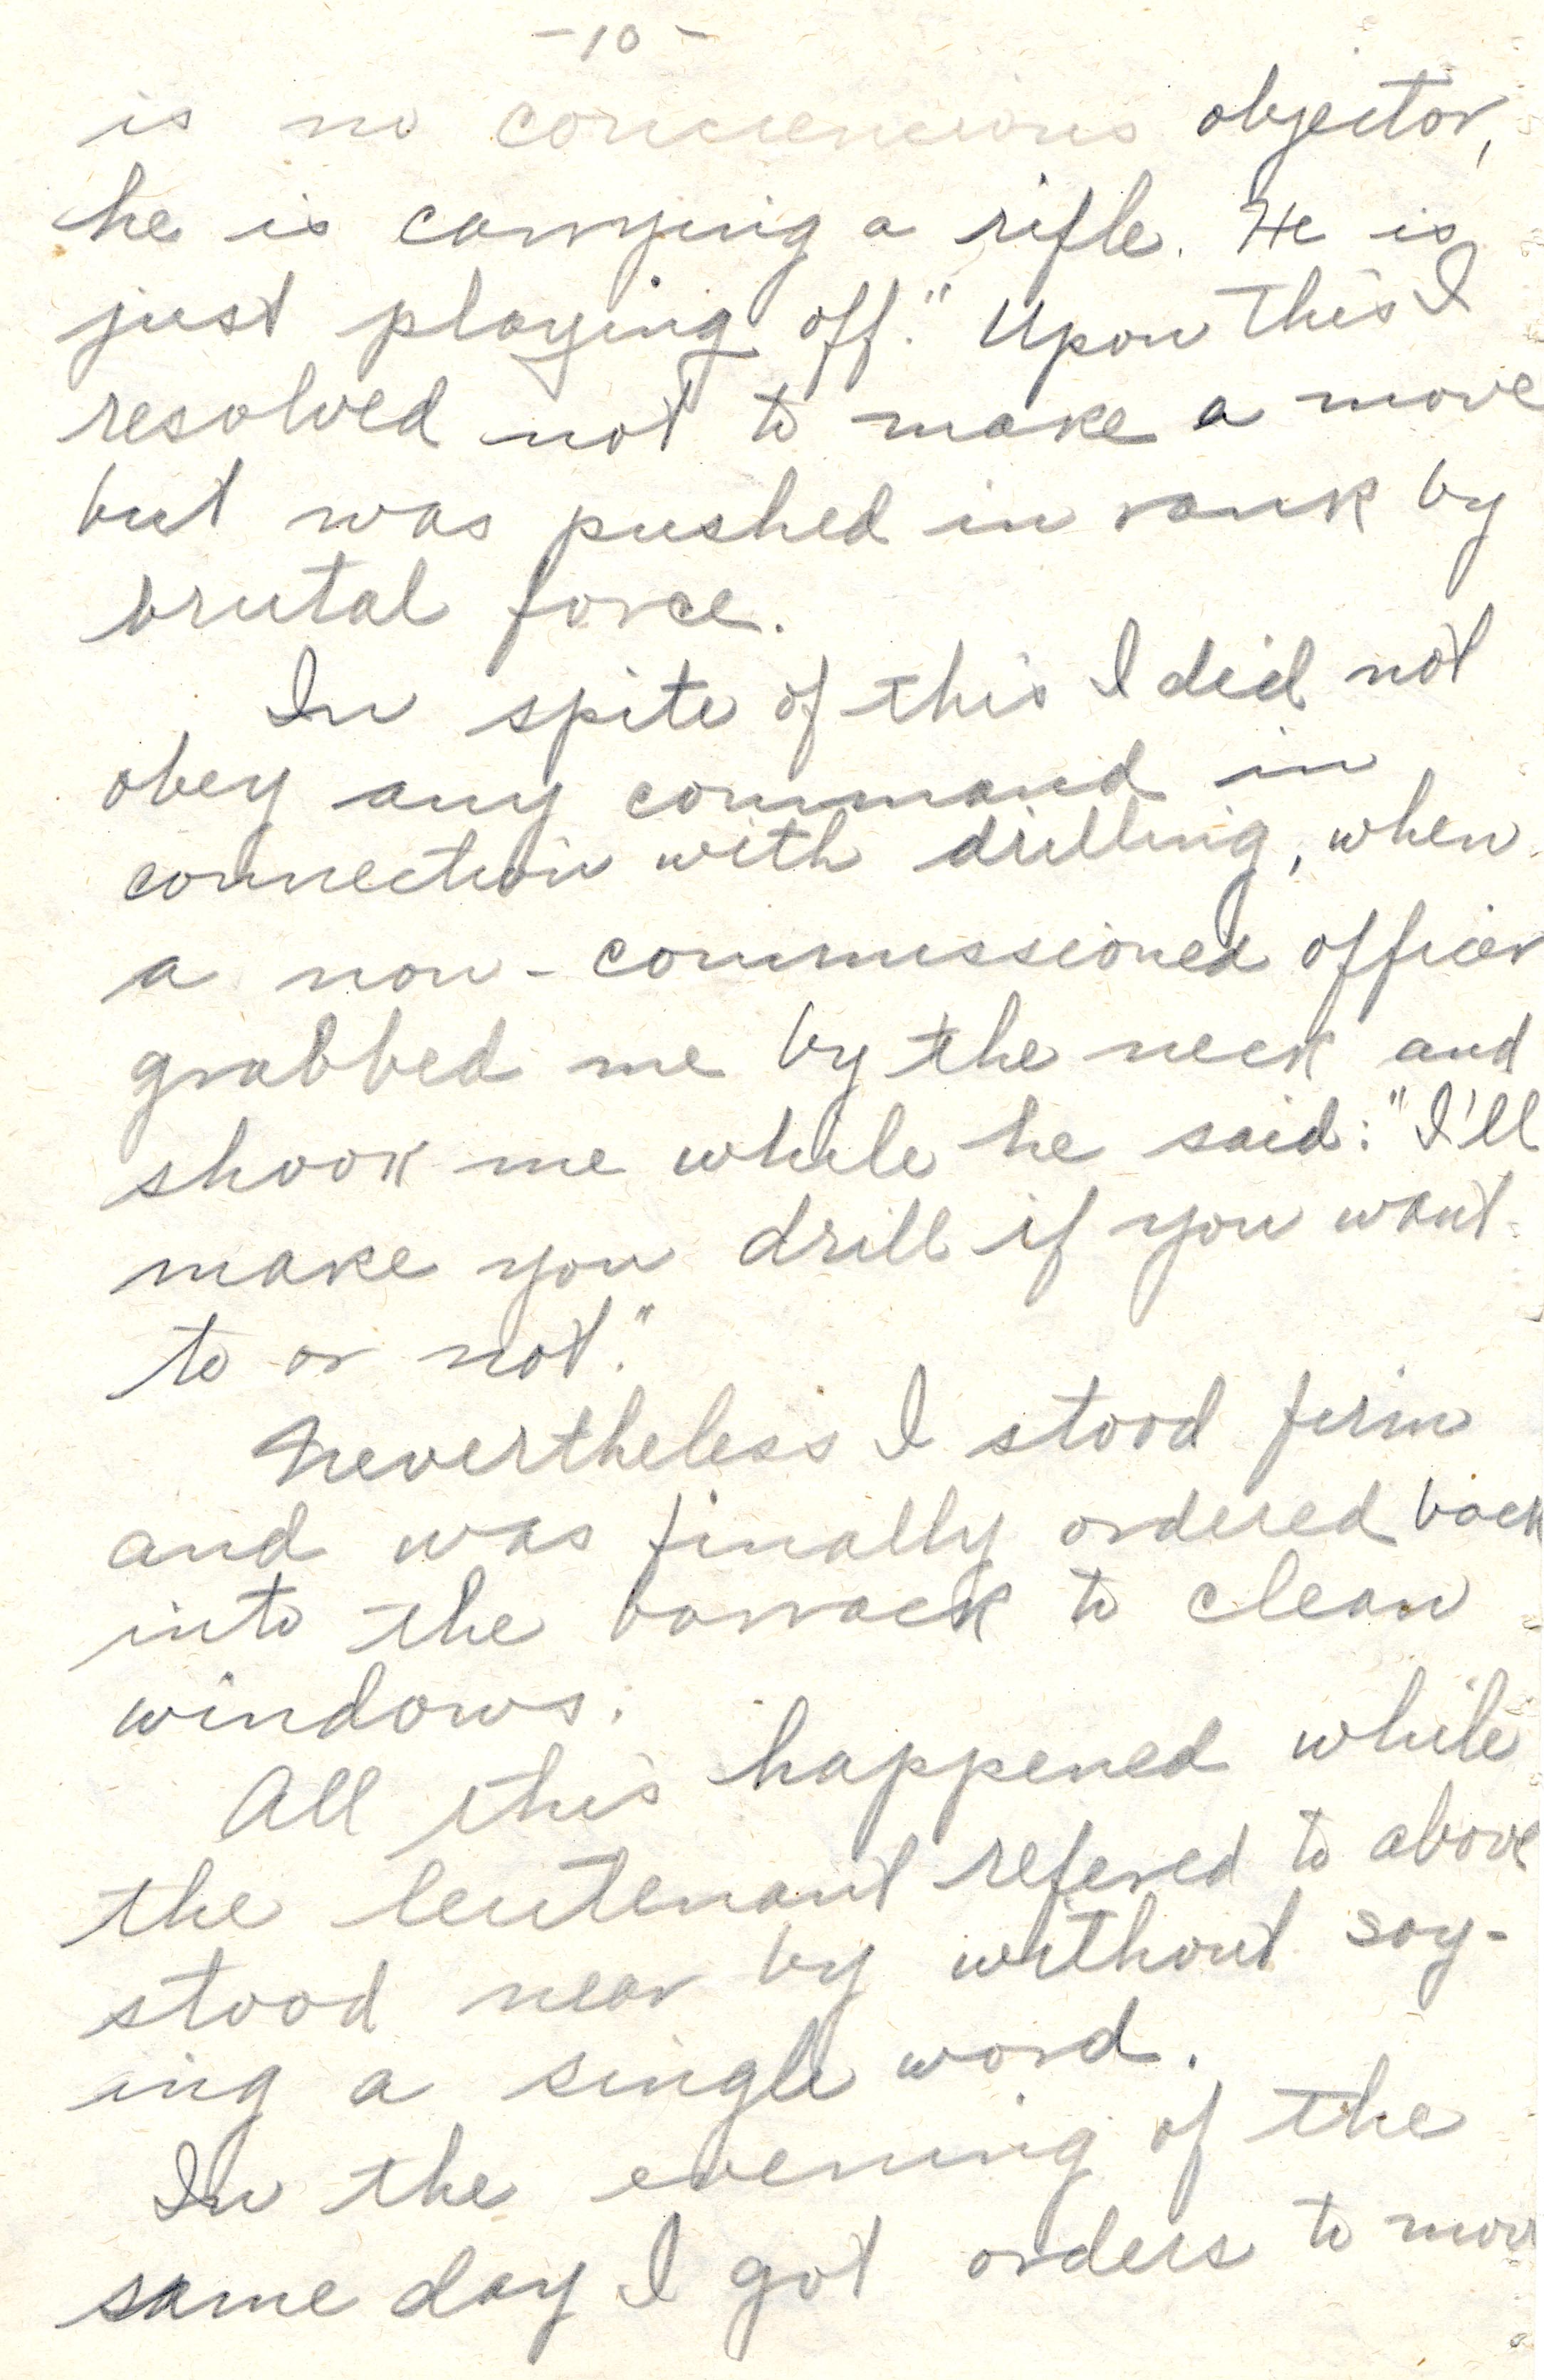 -10-
is no conciencious objector,
he is carrying a rifle. He is
just playing off." Upon this I
resolved not to make a move
but was pushed in rank by
brutal force.
In spite of this I did not
obey any command in
connection with drilling, when
a non-commissioned officer
grabbed me by the neck and
shook me while he said: "I'll
make you drill if you want
to or not."
Nevertheless I stood firm
and was finally ordered back
into the barrack to clean
windows.
All this happened while
the leutenant refered to above
stood near by without say-
ing a single word.
In the evening of the
same day I got orders to move